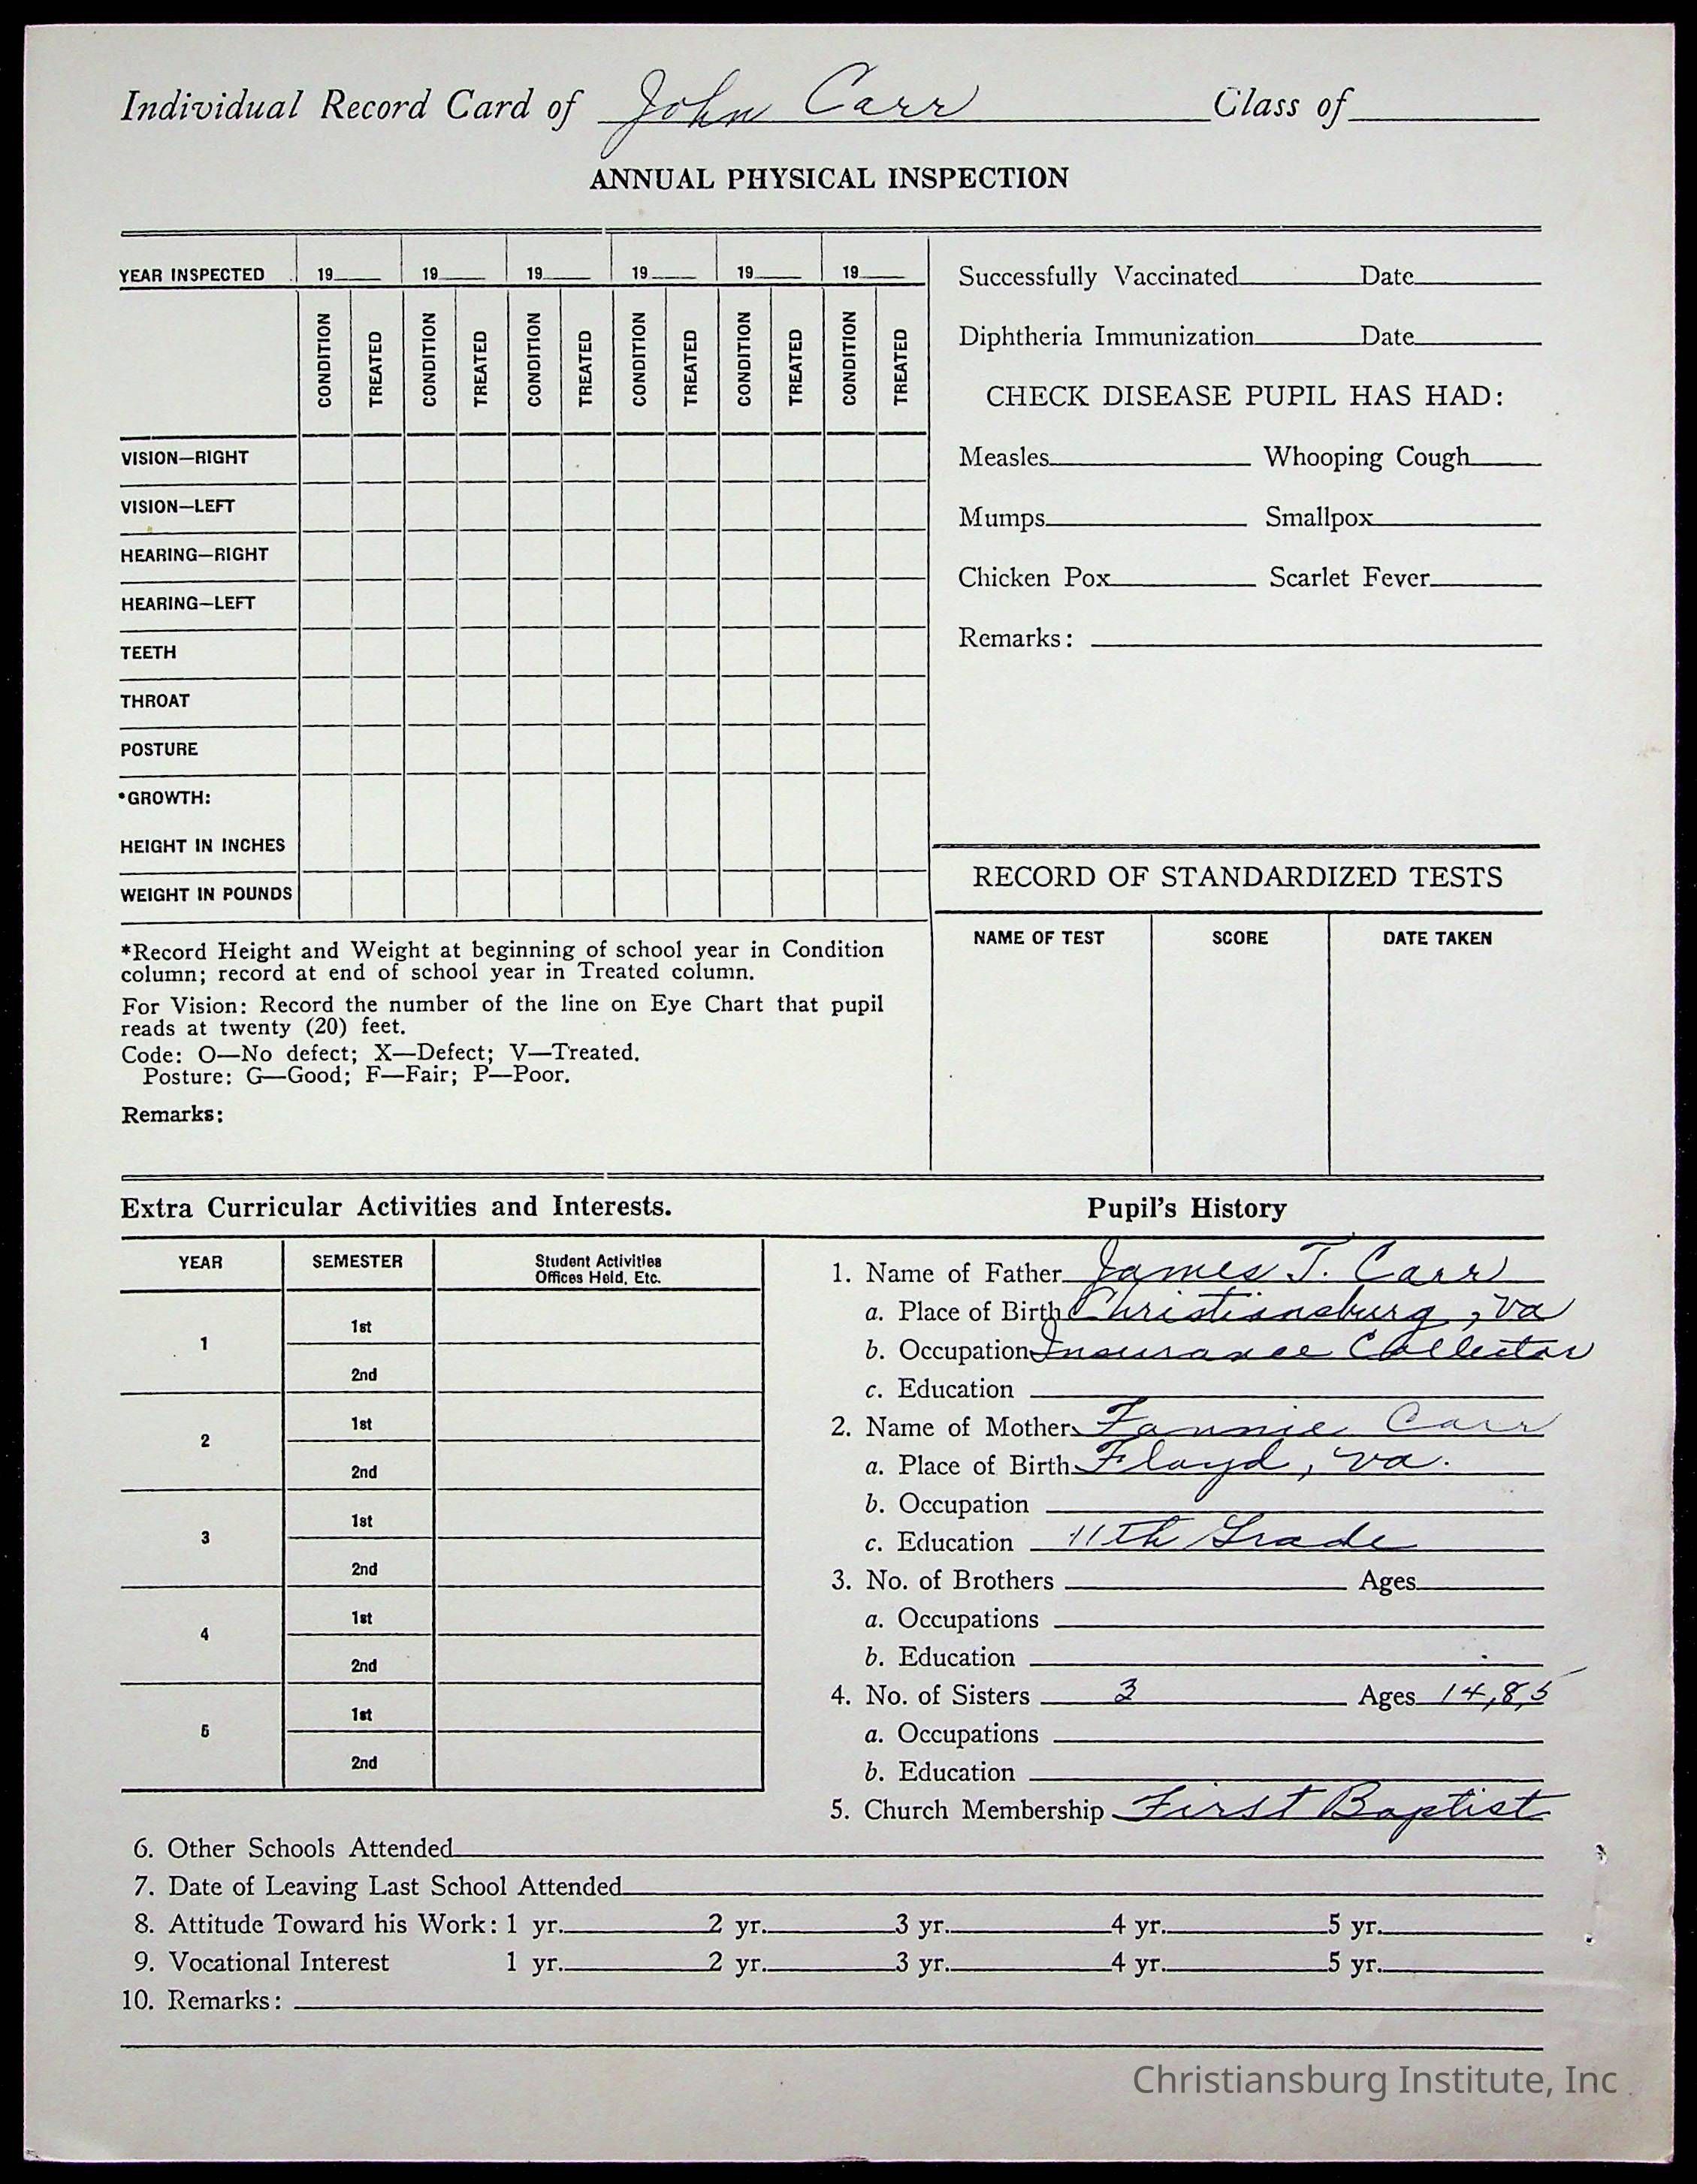 Individual Record Card of John Carr Class of
ANNUAL PHYSICAL INSPECTION
YEAR INSPECTED 19 19 19 19 19 19
CONDITION TREATED CONDITION TREATED CONDITION TREATED CONDITION TREATED CONDITION TREATED CONDITION TREATED
VISION—RIGHT
VISION—LEFT
HEARING—RIGHT
HEARING—LEFT
TEETH
THROAT
POSTURE
*GROWTH:
HEIGHT IN INCHES
WEIGHT IN POUNDS
*Record Height and Weight at beginning of school year in Condition
column; record at end of school year in Treated column.
For Vision: Record the number of the line on Eye Chart that pupil
reads at twenty (20) feet.
Code: O—No defect; X—Defect; V—Treated.
Posture: G—Good; F—Fair; P—Poor.
Remarks:
Successfully Vaccinated Date
Diphtheria Immunization Date
CHECK DISEASE PUPIL HAS HAD:
Measles Whooping Cough
Mumps Smallpox
Chicken Pox Scarlet Fever
Remarks:
RECORD OF STANDARDIZED TESTS
NAME OF TEST SCORE DATE TAKEN
Extra Curricular Activities and Interests.
YEAR SEMESTER Student Activities
Offices Held, Etc.
1st
1
2nd
1st
2
2nd
1st
3
2nd
1st
4
2nd
1st
5
2nd
Pupil's History
1. Name of Father James T. Carr
a. Place of Birth Christiansburg, Va
b. Occupation Insurance Collector
c. Education
2. Name of Mother Fannie Carr
a. Place of Birth Floyd, Va.
b. Occupation
c. Education 11th Grade
3. No. of Brothers Ages
a. Occupations
b. Education
4. No. of Sisters 3 Ages 14,8,5
a. Occupations
b. Education
5. Church Membership First Baptist
6. Other Schools Attended
7. Date of Leaving Last School Attended
8. Attitude Toward his Work: 1 yr. 2 yr. 3 yr. 4 yr. 5 yr.
9. Vocational Interest 1 yr. 2 yr. 3 yr. 4 yr. 5 yr.
10. Remarks:
Christiansburg Institute, Inc